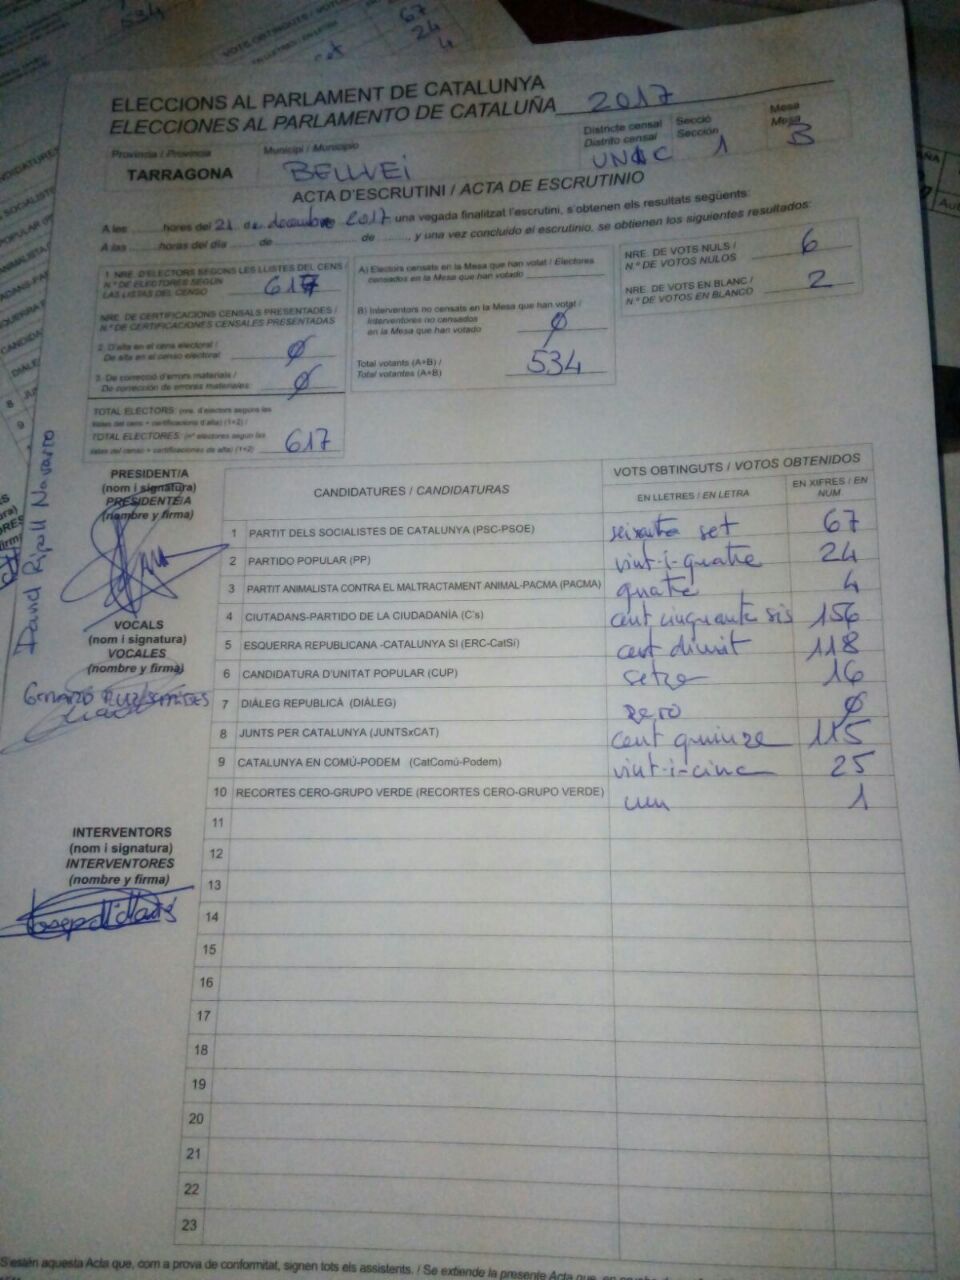 ELECCIONS AL PARLAMENT DE CATALUNYA
ELECCIONES AL PARLAMENTO DE CATALUÑA 2017
Província / Provincia
TARRAGONA
Municipi / Municipio
BELLVEI
Districte censal
Distrito censal
Secció
Sección
1
Mesa
Mesa
B
ACTA D'ESCRUTINI / ACTA DE ESCRUTINIO
A les ........ hores del 21 de decembre 2017 una vegada finalitzat l'escrutini, s'obtenen els resultats següents:
A las ........ horas del día ........ de ........ de ........, y una vez concluido el escrutinio, se obtienen los siguientes resultados:
1. NRE. D'ELECTORS SEGONS LES LLISTES DEL CENS /
N.º DE ELECTORES SEGÚN
LAS LISTAS DEL CENSO
617
NRE. DE CERTIFICACIONS CENSALS PRESENTADES /
N.º DE CERTIFICACIONES CENSALES PRESENTADAS
2. D'alta en el cens electoral /
De alta en el censo electoral
Ø
3. De correcció d'errors materials /
De corrección de errores materiales
Ø
TOTAL ELECTORS: (nre. d'electors segons les
llistes del cens + certificacions d'alta) (1+2) /
TOTAL ELECTORES: (nº electores según las
listas del censo + certificaciones de alta) (1+2)
617
A) Electors censats en la Mesa que han votat / Electores
censados en la Mesa que han votado
B) Interventors no censats en la Mesa que han votat /
Interventores no censados
en la Mesa que han votado
Ø
Total votants (A+B) /
Total votantes (A+B)
534
NRE. DE VOTS NULS /
N.º DE VOTOS NULOS
6
NRE. DE VOTS EN BLANC /
N.º DE VOTOS EN BLANCO
2
PRESIDENT/A
(nom i signatura)
PRESIDENTE/A
(nombre y firma)
David Ripoll Navarro
VOCALS
(nom i signatura)
VOCALES
(nombre y firma)
INTERVENTORS
(nom i signatura)
INTERVENTORES
(nombre y firma)
CANDIDATURES / CANDIDATURAS
VOTS OBTINGUTS / VOTOS OBTENIDOS
EN LLETRES / EN LETRA
EN XIFRES / EN NUM
1 PARTIT DELS SOCIALISTES DE CATALUNYA (PSC-PSOE) seixanta set 67
2 PARTIDO POPULAR (PP) vint-i-quatre 24
3 PARTIT ANIMALISTA CONTRA EL MALTRACTAMENT ANIMAL-PACMA (PACMA) quatre 4
4 CIUTADANS-PARTIDO DE LA CIUDADANÍA (C's) cent cinquanta sis 156
5 ESQUERRA REPUBLICANA -CATALUNYA SI (ERC-CatSi) cent divuit 118
6 CANDIDATURA D'UNITAT POPULAR (CUP) setze 16
7 DIÀLEG REPUBLICÀ (DIÀLEG) zero Ø
8 JUNTS PER CATALUNYA (JUNTSxCAT) cent quinze 115
9 CATALUNYA EN COMÚ-PODEM (CatComú-Podem) vint-i-cinc 25
10 RECORTES CERO-GRUPO VERDE (RECORTES CERO-GRUPO VERDE) un 1
11
12
13
14
15
16
17
18
19
20
21
22
23
S'estén aquesta Acta que, com a prova de conformitat, signen tots els assistents. / Se extiende la presente Acta que, en prueba de